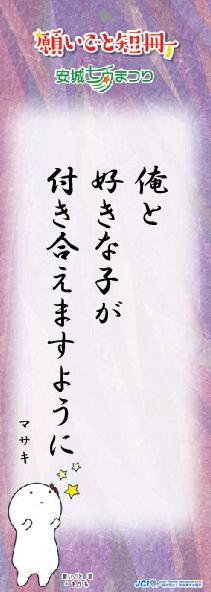 願いごと短冊
安城七夕まつり
俺と
好きな子が
付き合えますように
マサキ
JCI